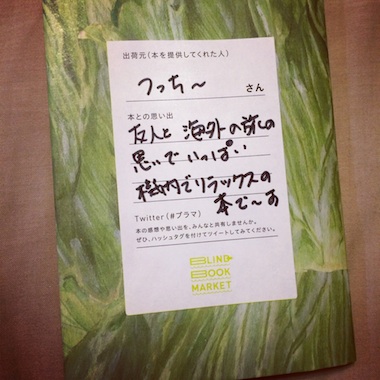 出荷元（本を提供してくれた人）
つっちー
さん
本との思い出
友人と海外の旅の
思いでいっぱい
機内でリラックスの
本で〜す
Twitter（#ブラマ）
本の感想や思い出を、みんなと共有しませんか。
ぜひ、ハッシュタグを付けてツイートしてみてください。
BLIND
BOOK
MARKET